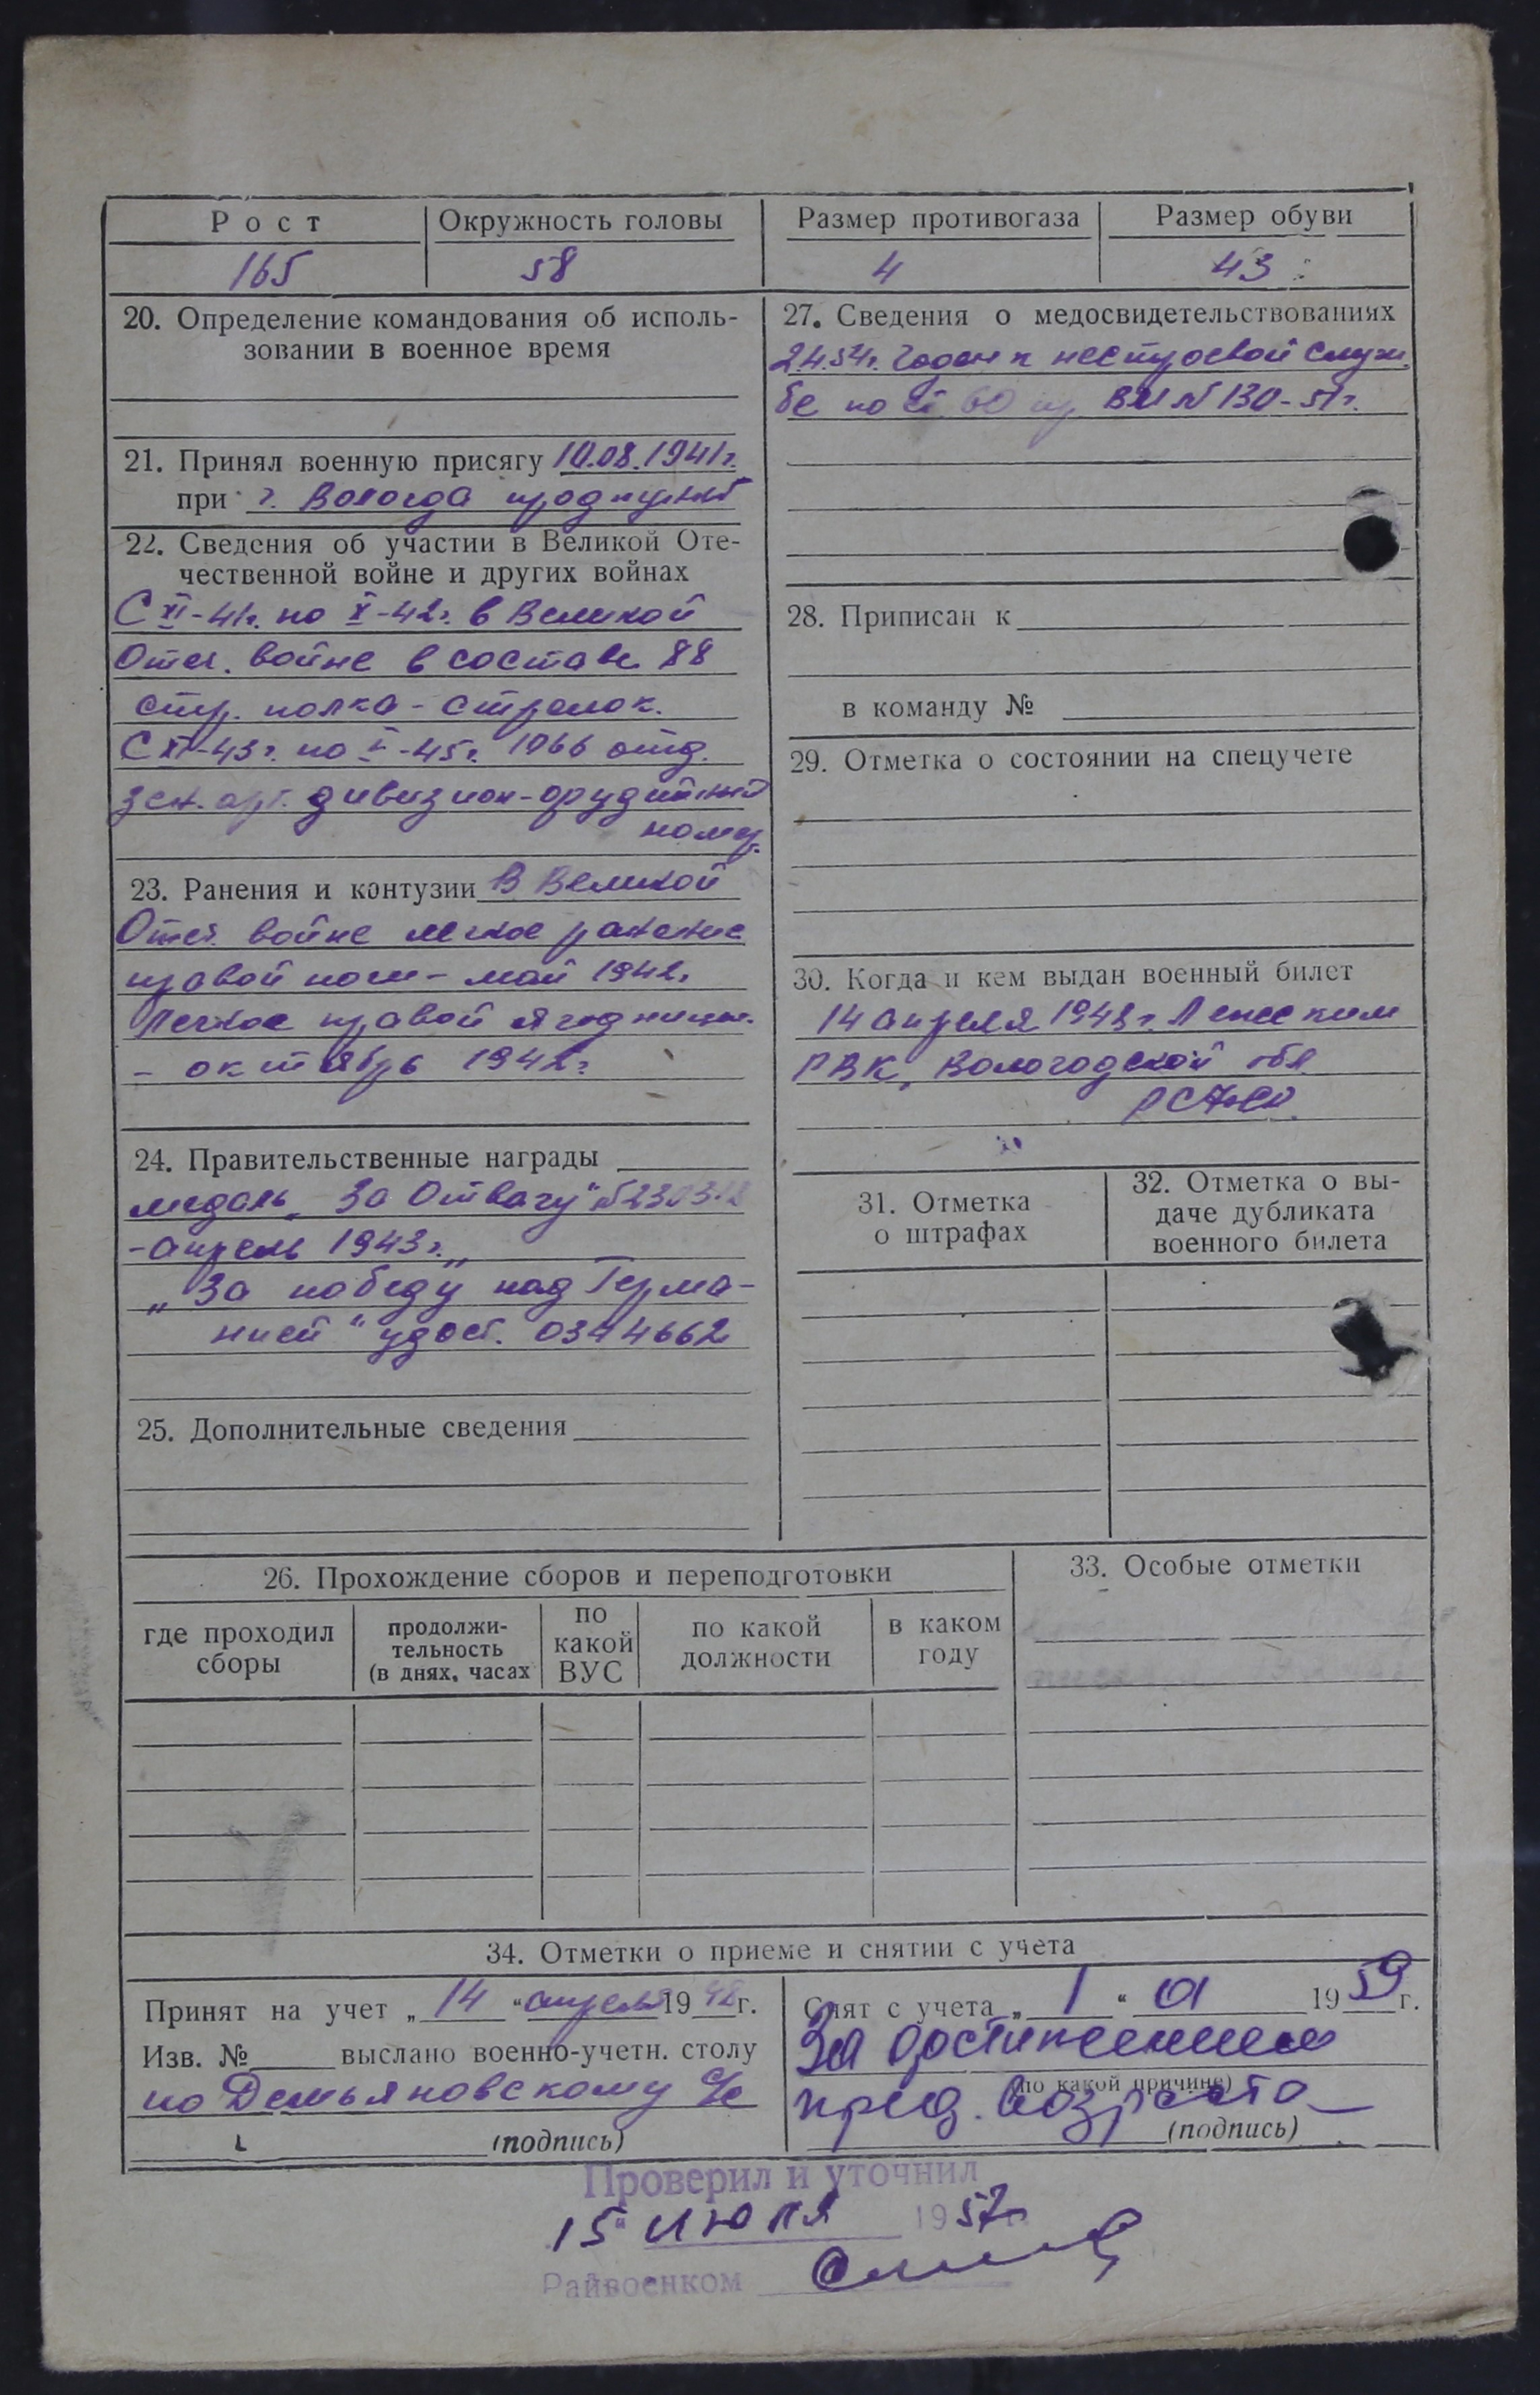 Рост
Окружность головы
Размер противогаза
Размер обуви
165
58
4
43
20. Определение командования об исполь-
зовании в военное время
21. Принял военную присягу 10.08.1941г.
при г. Вологда продпункт
22. Сведения об участии в Великой Оте-
чественной войне и других войнах
С XI-41г. по X-42г. в Великой
Отеч. войне в составе 88
стр. полка - стрелок.
1066 отд.
зен. арт. дивизион - орудийный
номер.
23. Ранения и контузии В Великой
Отеч. войне легкое ранение
правой ноги - май 1942г.
Легкое правой ягодицы.
- октябрь 1942г.
24. Правительственные награды
медаль „За Отвагу"
- апрель 1943г.
„За победу над Герма-
нией" удост. 0344662
25. Дополнительные сведения
27. Сведения о медосвидетельствованиях
2.4.54г. Годен к нестроевой служ-
бе по ст 60 пр ВМ № 130-51г.
28. Приписан к
в команду №
29. Отметка о состоянии на спецучете
30. Когда и кем выдан военный билет
14 апреля 1948г. Лежским
РВК, Вологодской обл
РСФСР.
31. Отметка
о штрафах
32. Отметка о вы-
даче дубликата
военного билета
26. Прохождение сборов и переподготовки
где проходил
сборы
продолжи-
тельность
(в днях, часах
по
какой
ВУС
по какой
должности
в каком
году
33. Особые отметки
34. Отметки о приеме и снятии с учета
Принят на учет „14" апреля 1948г.
Изв. № выслано военно-учетн. столу
по Демьяновскому с/с
(подпись)
Снят с учета „1" 01 1959г.
За достижением
(по какой причине)
пред. возраста
(подпись)
Проверил и уточнил
15" июля 1957г
Райвоенком